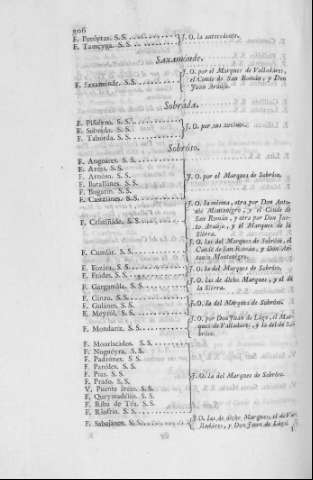 906
F. Pesegos. S. S.
F. Tamcyga. S. S.
J. O. la antecedente.
SAXAMONDE.
F. Saxamonde. S. S.
J. O. por el Marques de Valladares,
el Conde de San Román, y Don
Juan Araújo.
SOBRADA.
F. Piñeyro. S. S.
F. Sobrada. S. S.
F. Taborda. S. S.
J. O. por sus vecinos.
SOBROSO.
F. Angoares. S. S.
F. Areas. S. S.
F. Arnoso. S. S.
F. Batallanes. S. S.
F. Bugarin. S. S.
F. Castelanes. S. S.
J. O. por el Marques de Sobroso.
F. Cristiñade. S. S.
J. O. la misma, otra por Don Anto-
nio Montenegro, y el Conde de
San Román, y otra por Don Jua-
to Araújo, y el Marques de la
Sierra.
F. Cumiar. S. S.
J. O. las del Marques de Sobroso, el
Conde de San Román, y Don An-
tonio Montenegro.
F. Fozara. S. S.
F. Frades. S. S.
J. O. la del Marques de Sobroso.
F. Gargamála. S. S.
J. O. las de dicho Marques, y el de
la Sierra.
F. Ginzo. S. S.
F. Gulanes. S. S.
F. Meyrol. S. S.
J. O. la del Marques de Sobroso.
F. Mondariz. S. S.
J. O. por Don Juan de Lago, el Mar-
ques de Valladares, y la del de So-
broso.
F. Mouriscados. S. S.
F. Nogueyra. S. S.
F. Padrones. S. S.
F. Paredes. S. S.
F. Pias. S. S.
F. Prado. S. S.
V. Puente áreas. S. S.
F. Queymadelos. S. S.
F. Riba de Téa. S. S.
F. Riofrio. S. S.
J. O. la del Marques de Sobroso.
F. Sabajánes. S. S.
J. O. las de dicho Marques, el de Va-
lladáres, y Don Juan de Lago.